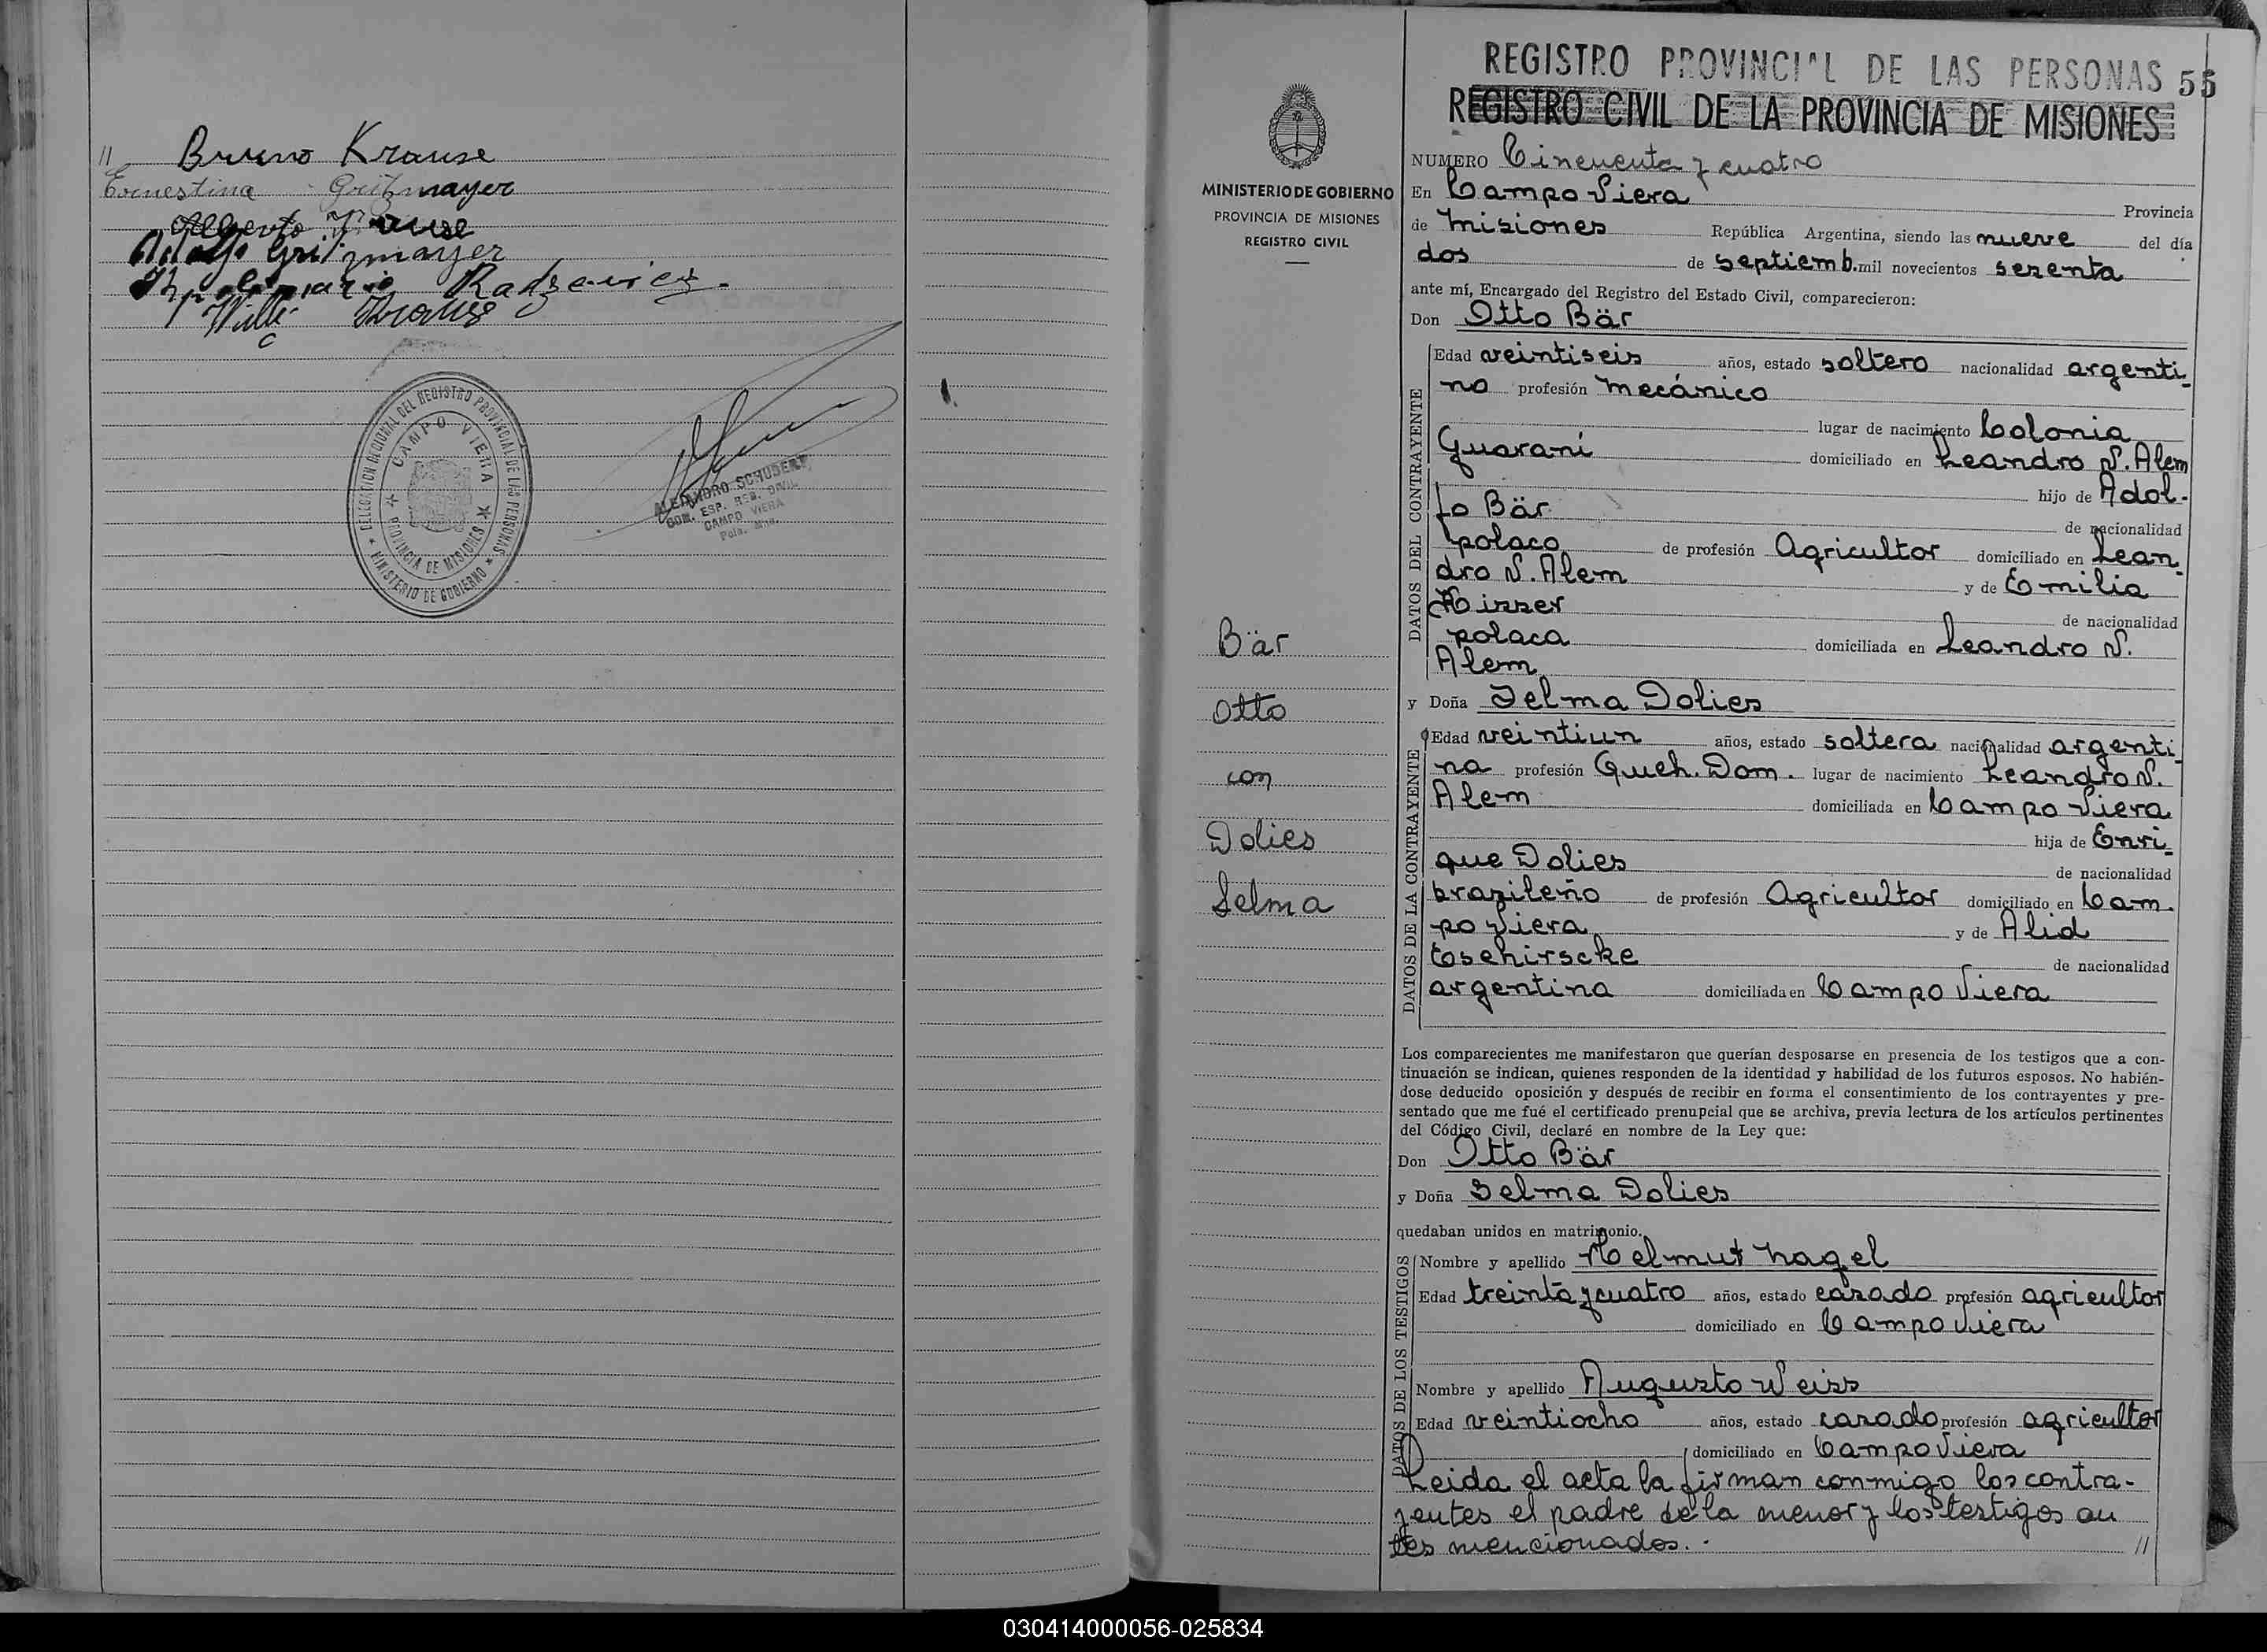 // Bruno Krause
Ernestina Gritzmayer
Alberto Krause
Adolfo Gritzmayer
Radzevicz
Willi Krause
DELEGACION REGIONAL DEL REGISTRO PROVINCIAL DE LAS PERSONAS
CAMPO VIERA
PROVINCIA DE MISIONES
MINISTERIO DE GOBIERNO
ALEJANDRO SCHUBERT
COM. ESP. REG. CIVIL
CAMPO VIERA
Pcia. Mnes.
MINISTERIO DE GOBIERNO
PROVINCIA DE MISIONES
REGISTRO CIVIL
Bär
Otto
con
Dolies
Selma
REGISTRO PROVINCIAL DE LAS PERSONAS 55
REGISTRO CIVIL DE LA PROVINCIA DE MISIONES
NUMERO Cincuenta y cuatro
En Campo Viera Provincia
de Misiones República Argentina, siendo las nueve del día
dos de septiemb. mil novecientos sesenta
ante mí, Encargado del Registro del Estado Civil, comparecieron:
Don Otto Bär
DATOS DEL CONTRAYENTE
Edad veintiseis años, estado soltero nacionalidad argenti-
no profesión Mecánico
lugar de nacimiento Colonia
Guaraní domiciliado en Leandro N. Alem
hijo de Adol-
fo Bär de nacionalidad
polaco de profesión Agricultor domiciliado en Lean-
dro N. Alem y de Emilia
Hisser de nacionalidad
polaca domiciliada en Leandro N.
Alem
y Doña Selma Dolies
DATOS DE LA CONTRAYENTE
Edad veintiun años, estado soltera nacionalidad argenti-
na profesión Queh. Dom. lugar de nacimiento Leandro N.
Alem domiciliada en Campo Viera
hija de Enri-
que Dolies de nacionalidad
brazileño de profesión Agricultor domiciliado en Cam-
po Viera y de Alid
Tschirscke de nacionalidad
argentina domiciliada en Campo Viera
Los comparecientes me manifestaron que querían desposarse en presencia de los testigos que a con-
tinuación se indican, quienes responden de la identidad y habilidad de los futuros esposos. No habién-
dose deducido oposición y después de recibir en forma el consentimiento de los contrayentes y pre-
sentado que me fué el certificado prenupcial que se archiva, previa lectura de los artículos pertinentes
del Código Civil, declaré en nombre de la Ley que:
Don Otto Bär
y Doña Selma Dolies
quedaban unidos en matrimonio.
DATOS DE LOS TESTIGOS
Nombre y apellido Helmut Nagel
Edad treinta y cuatro años, estado casado profesión agricultor
domiciliado en Campo Viera
Nombre y apellido Augusto Weiss
Edad veintiocho años, estado casado profesión agricultor
domiciliado en Campo Viera
Leida el acta la firman conmigo los contra-
yentes el padre de la menor y los testigos an
tes mencionados. - //
030414000056-025834